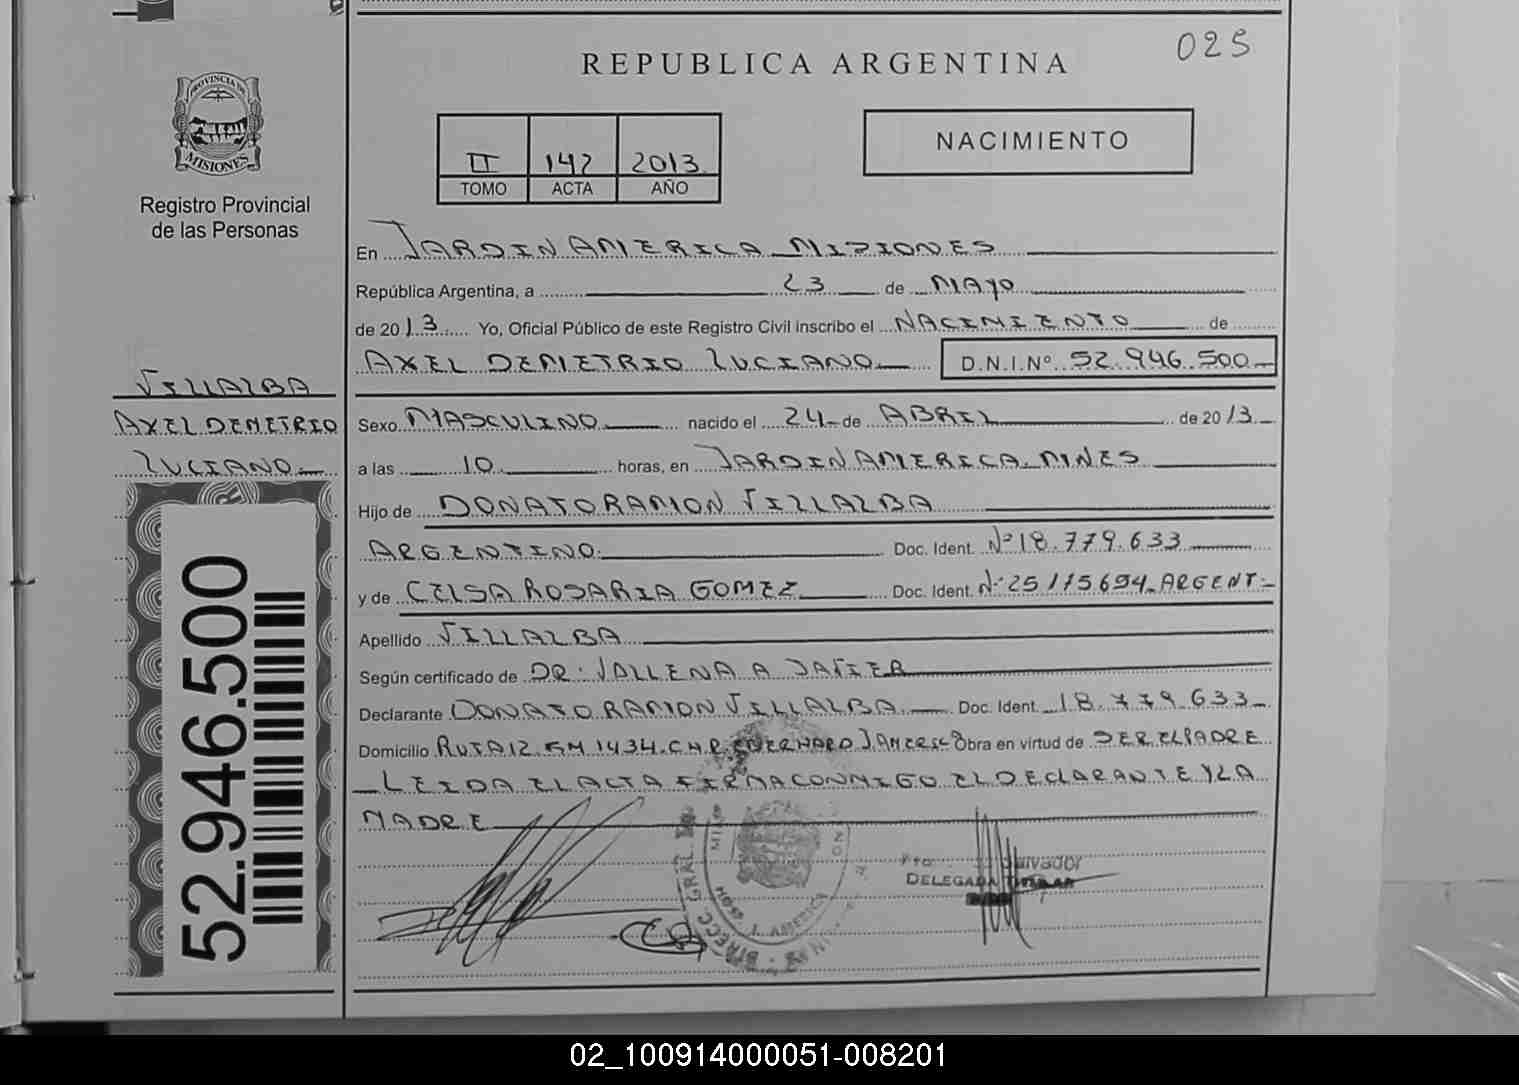 025
REPUBLICA ARGENTINA
PROVINCIA DE
MISIONES
Registro Provincial
de las Personas
II 142 2013
TOMO ACTA AÑO
NACIMIENTO
En JARDIN AMERICA MISIONES
República Argentina, a 23 de MAYO
de 2013 Yo, Oficial Público de este Registro Civil inscribo el NACIMIENTO de
AXEL DEMETRIO LUCIANO D.N.I.Nº 52.946.500
VILLALBA
AXEL DEMETRIO
LUCIANO
52.946.500
Sexo MASCULINO nacido el 24 de ABRIL de 2013
a las 10 horas, en JARDIN AMERICA MNES
Hijo de DONATO RAMON VILLALBA
ARGENTINO Doc. Ident. Nº 18.779.633
y de CELSA ROSARIA GOMEZ Doc. Ident. Nº 25175694 ARGENT
Apellido VILLALBA
Según certificado de DR. VALLENA A JAVIER
Declarante DONATO RAMON VILLALBA Doc. Ident. 18.779.633
Domicilio RUTA 12 KM 1434 Obra en virtud de SER EL PADRE
LEIDA EL ACTA FIRMA CONMIGO EL DECLARANTE Y LA
MADRE
Salvador
DELEGADA TITULAR
DIRECC. GRAL.
AMERICA
02_100914000051-008201